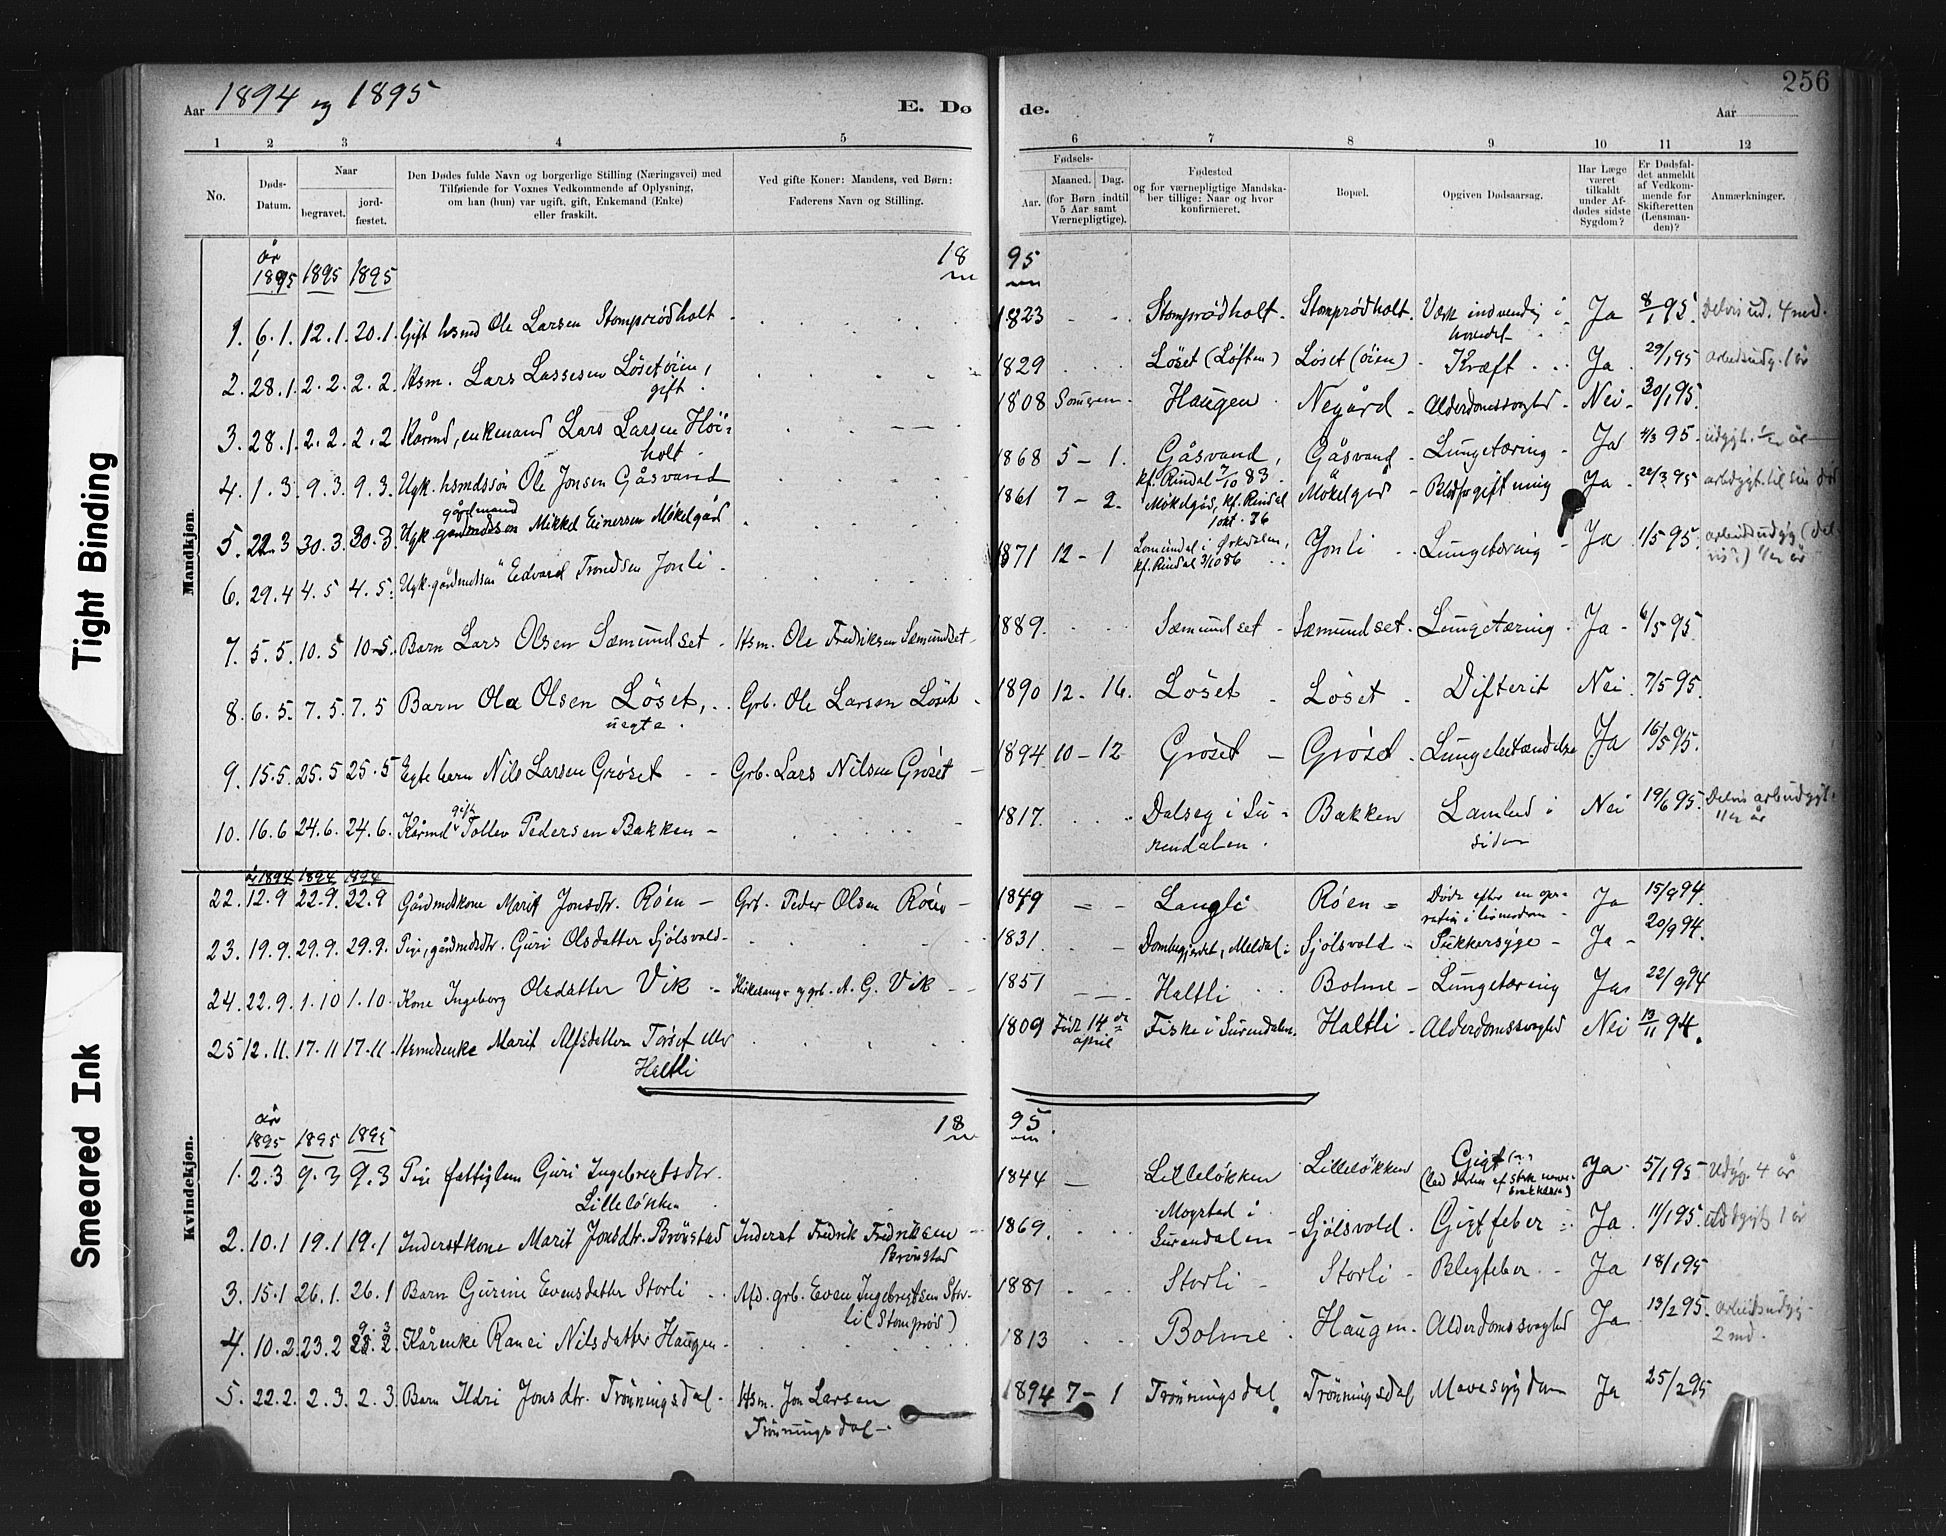 256
Aar 1894 og 1895
E. Dø de.
Aar
1 2 3 4 5 6 7 8 9 10 11 12
No.
Døds-Datum.
Naar
begravet.
jord-fæstet.
Den Dødes fulde Navn og borgerlige Stilling (Næringsvei) med
Tilføiende for Voxnes Vedkommende af Oplysning,
om han (hun) var ugift, gift, Enkemand (Enke)
eller fraskilt.
Ved gifte Koner: Mandens, ved Børn:
Faderens Navn og Stilling.
Fødsels-
Aar.
Maaned. Dag.
(for Børn indtil
5 Aar samt
Værnepligtige).
Fødested
og for værnepligtige Mandska-
ber tillige: Naar og hvor
konfirmeret.
Bopæl.
Opgiven Dødsaarsag.
Har Læge
været
tilkaldt
under Af-
dødes sidste
Sygdom?
Er Dødsfal-
det anmeldt
af Vedkom-
mende for
Skifteretten
(Lensman-
den)?
Anmærkninger.
Mandkjøn.
år
1895 1895 1895
18 95
1. 6.1. 12.1. 20.1. Gift hsmd Ole Larsen Stomprødholt 1823 Stomprødholt. Stomprødholt. Værk indvendig i hovedet Ja 8/1 95. Delvis ud. 4 md.
2. 28.1. 2.2. 2.2. Hsm. Lars Larsen Løsetøien, gift. 1829 Løset (Løften) Løset (øien) Kræft Ja 29/1 95 arbeidsudg. 1 år
3. 28.1. 2.2. 2.2 Kårmd, enkemand Lars Larsen Höi-holt 1808 Haugen Negård Alderdomssvaghed Nei 30/1 95.
4. 1.3. 9.3. 9.3. Ugk. hsmdssøn Ole Jonsen Gåsvand 1868 5 - 1. Gåsvand, kf. Rindal 7/10 83. Gåsvand Lungetæring Ja 4/3 95
5. 22.3 30.3. 30.3. Ugk. gårdmand Mikkel Einersen Mökelgård 1861 7 - 2. Mökelgård, kf. Rindal 1 okt. 76 Mökelgård Blodforgiftning Ja 22/3 95
6. 29.4 4.5 4.5. Ugk. gårdmdssøn Edvard Trondsen Jonli 1871 12 - 1 Lomundal i Orkedalen, kf. Rindal 3/10 86 Jonli Lungetæring Ja 1/5 95.
7. 5.5. 10.5 10.5. Barn Lars Olsen Sæmundset Hsm. Ole Fredriksen Sæmundset 1889. Sæmundset Sæmundset Lungetæring Ja 6/5 95.
8. 6.5. 7.5. 7.5 Barn Ola Olsen Löset, uegte. Grb. Ole Larsen Löset 1890 12 - 16. Löset Löset Difterit Nei 7/5 95.
9. 15.5. 25.5 25.5 Egte barn Nils Larsen Gröset Grb. Lars Nilsen Gröset 1894 10 - 12 Gröset Gröset Lungebetændelse Ja 16/5 95.
10. 16.6 24.6. 24.6. Kårmd gift Tollev Pedersen Bakken 1817. Dalseg i Surendalen. Bakken Lamhed i siden Nei 19/6 95. Delvis arbudygt. 1/2 år
Kvindekjøn.
år 1894 1894 1894
22. 12.9 22.9. 22.9 Gårdmdskone Marit Jonsdtr. Röen Grb. Peder Olsen Röen 1849 Langli Röen Døde efter en operation i livmoderen Ja 15/9 94.
23. 19.9. 29.9. 29.9. Pige, gårdmdsdtr. Guri Olsdatter Sjölsvold 1831. Sjölsvold Sukkersyge Ja 20/9 94.
24. 22.9. 1.10 1.10. Kone Ingeborg Olsdatter Vik Kirkesanger og grb. A. G. Vik 1851 Haltli Bolme Lungetæring Ja 22/9 94
25 12.11. 17.11 17.11. Hsmdsenke Marit Alfsdatter Torset eller Haltli 1809 Født 14de april Fiske i Surendalen. Haltli Alderdomssvaghed Nei 13/11 94.
år
1895 1895 1895
18 95.
1. 2.3 9.3 9.3 Pige fattiglem Guri Ingebregtsdtr. Lilleløkken 1844 Lilleløkken Lilleløkken Gigt Ja 5/1 95 Udyg. 4 år
2. 10.1 19.1 19.1 Inderstkone Marit Jonsdtr. Brönstad Inderst Fredrik Fredriksen Brönstad 1869. Mogstad i Surendalen Sjölsvold. Gigtfeber Ja 11/1 95. 1 år
3. 15.1 26.1. 26.1 Barn Gurine Evensdatter Storli Afd. grb. Even Ingebregtsen Storli (Stomprød) 1881 Storli Storli Blegfeber Ja 18/1 95
4. 10.2. 23.2 9.3 Kårenke Ranei Nilsdatter Haugen 1813 Bolme Haugen. Alderdomssvaghed Ja 13/2 95. arbeidsudyg. 2 md.
5. 22.2. 2.3. 2.3. Barn Ildri Jonsdtr. Trönningsdal Hsm. Jon Larsen Trönningsdal 1894 7 - 1 Trönningsdal Trönningsdal Mavesygdom Ja 25/2 95
Tight Binding
Smeared Ink